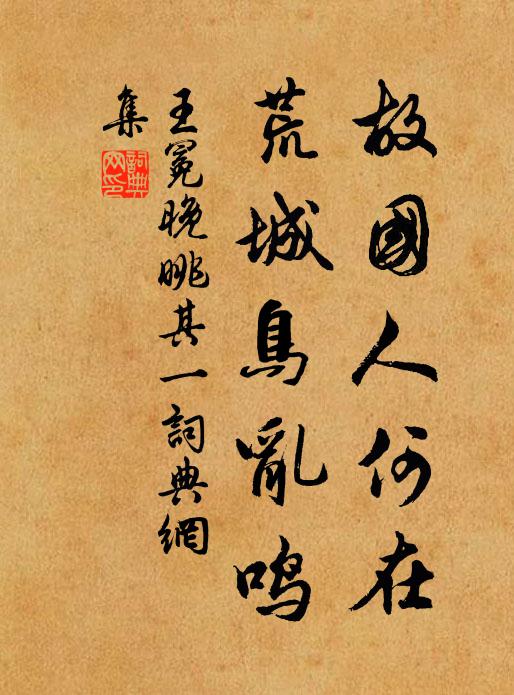 故國人何在
荒城鳥亂鳴
王冕晚眺其一詞典網
集
詞典網印